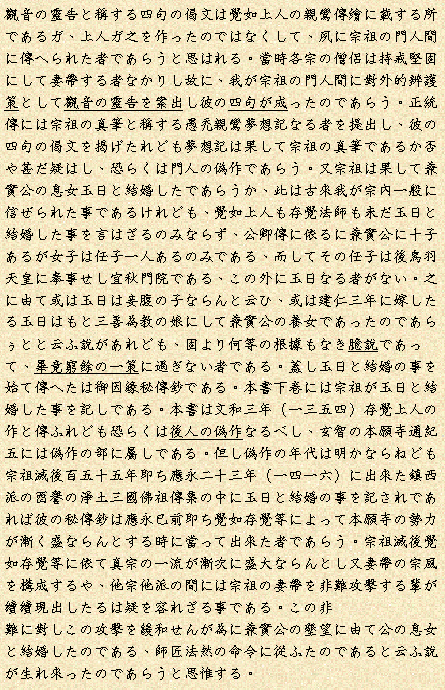 觀音の靈告と稱する四句の偈文は覺如上人の親鸞傳繪に載する所
であるガ、上人ガ之を作ったのではなくして、夙に宗祖の門人間
に傳へられた者であらうと思はれる。當時各宗の僧侶は持戒堅固
にして妻帶する者なかりし故に、我が宗祖の門人間に對外的辨護
策として觀音の靈告を案出し彼の四句が成ったのであらう。正統
傳には宗祖の真筆と稱する愚禿親鸞夢想記なる者を提出し、彼の
四句の偈文を掲げたれども夢想記は果して宗祖の真筆であるか否
や甚だ疑はし、恐らくは門人の僞作であらう。又宗祖は果して兼
實公の息女玉日と結婚したであらうか、此は古來我が宗内一般に
信ぜられた事であるけれども、覺如上人も存覺法師も未だ玉日と
結婚した事を言はざるのみならず、公卿傳に依るに兼實公に十子
あるが女子は任子一人あるのみである、而してその任子は後鳥羽
天皇に奉事せし宜秋門院である、この外に玉日なる者がない。之
に由て或は玉日は妾腹の子ならんと云ひ、或は建仁三年に嫁した
る玉日はもと三善為教の娘にして兼實公の養女であったのであら
ぅとと云ふ説があれども、固より何等の根據もなき臆説であっ
て、畢竟窮餘の一策に過ぎない者である。蓋し玉日と結婚の事を
始て傳へたは御因縁秘傳鈔である。本書下巻には宗祖が玉日と結
婚した事を記してある。本書は文和三年（一三五四）存覺上人の
作と傳ふれども恐らくは後人の僞作なるべし、玄智の本願寺通紀
五には僞作の部に屬してある。但し僞作の年代は明かならねども
宗祖滅後百五十五年即ち應永二十三年（一四一六）に出來た鎮西
派の酉譽の淨土三國佛祖傳集の中に玉日と結婚の事を記されてあ
れば彼の秘傳鈔は應永已前即ち覺如存覺等によって本願寺の勢力
が漸く盛ならんとする時に當って出來た者であらう。宗祖滅後覺
如存覺等に依て真宗の一流が漸次に盛大ならんとし又妻帶の宗風
を構成するや、他宗他派の間には宗祖の妻帶を非難攻擊する輩が
續續現出したるは疑を容れざる事である。この非
難に對しこの攻擊を緩和せんが為に兼實公の懇望に由て公の息女
と結婚したのである、師匠法然の命令に從ふたのであると云ふ説
が生れ來ったのであらうと思惟する。